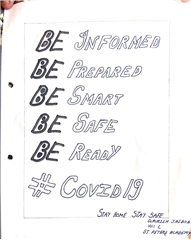 BE INFORMED
BE PREPARED
BE SMART
BE SAFE
BE READY
# COVID19
STAY HOME STAY SAFE
ST PETERS ACADEMY